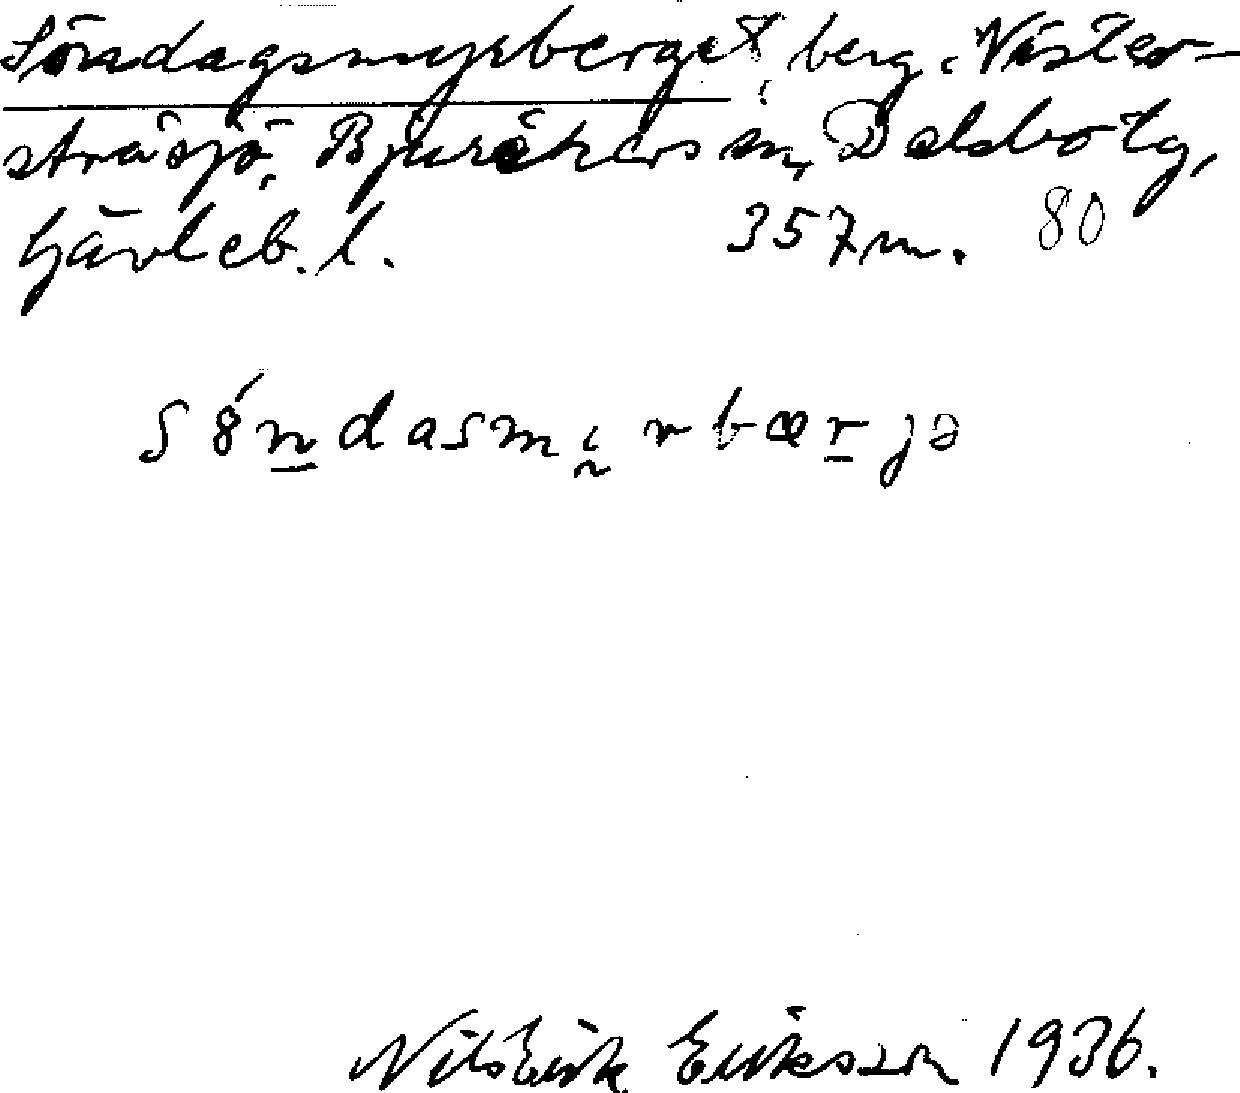 Söndagsmyrberget, berg, Väster-
stråsjö, Bjuråkers sn, Delsbo tg,
Gävleb. l. 357 m. 80
söndasmḭrbærjə
Nils Erik Eriksson 1936.